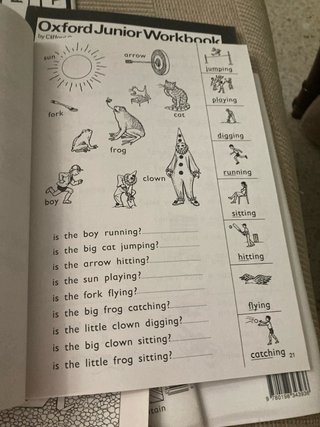 Oxford Junior Workbook
by Clifford
sun
arrow
fork
frog
cat
boy
clown
jumping
playing
digging
running
sitting
hitting
flying
catching
is the boy running?
is the big cat jumping?
is the arrow hitting?
is the sun playing?
is the fork flying?
is the big frog catching?
is the little clown digging?
is the big clown sitting?
is the little frog sitting?
21